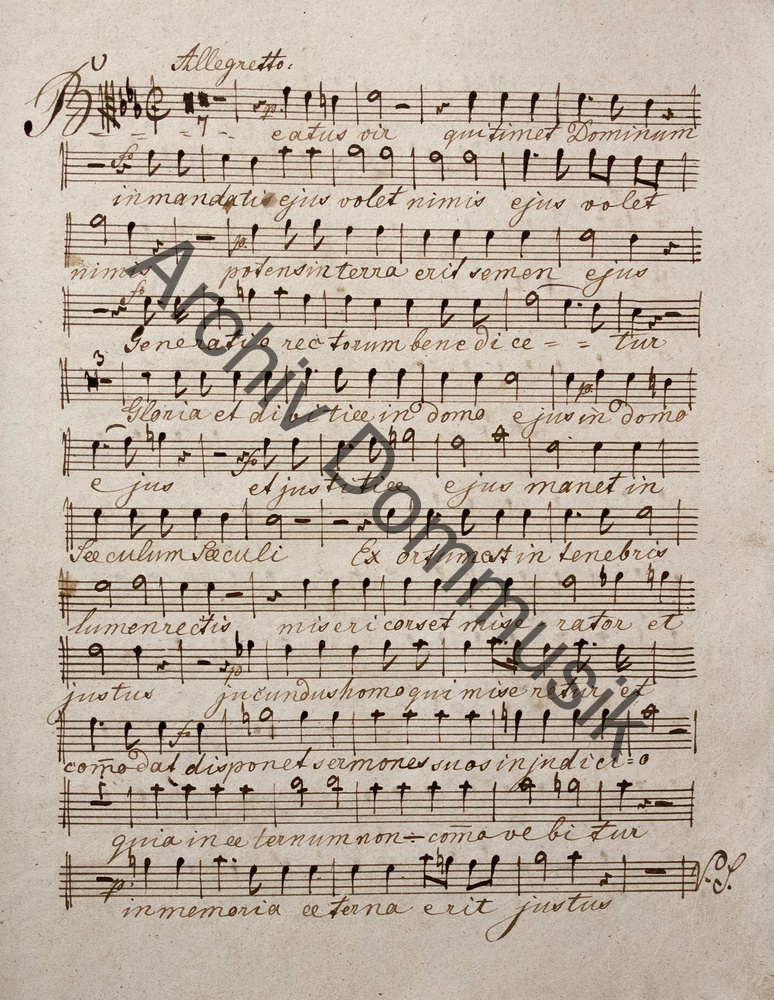 Allegretto:
B
7
p. eatus vir qui timet Dominum
fo
in mandatis ejus volet nimis ejus volet
nimis p. potens in terra erit semen ejus
fo
Generatio rectorum benedice = = tur
3
Gloria et divitiæ in domo ejus p. in domo
ejus fo et justitiæ ejus manet in
Sæculum Sæculi Ex ortum est in tenebris
lumen rectis misericors et mise rator et
justus p jucundus homo qui miseretur et
com̄odat f disponet sermones suos in judici=o
quia in æternum non ÷ com̄ovebitur
p. in memoria æterna erit justus
V.S.
Archiv Dommusik